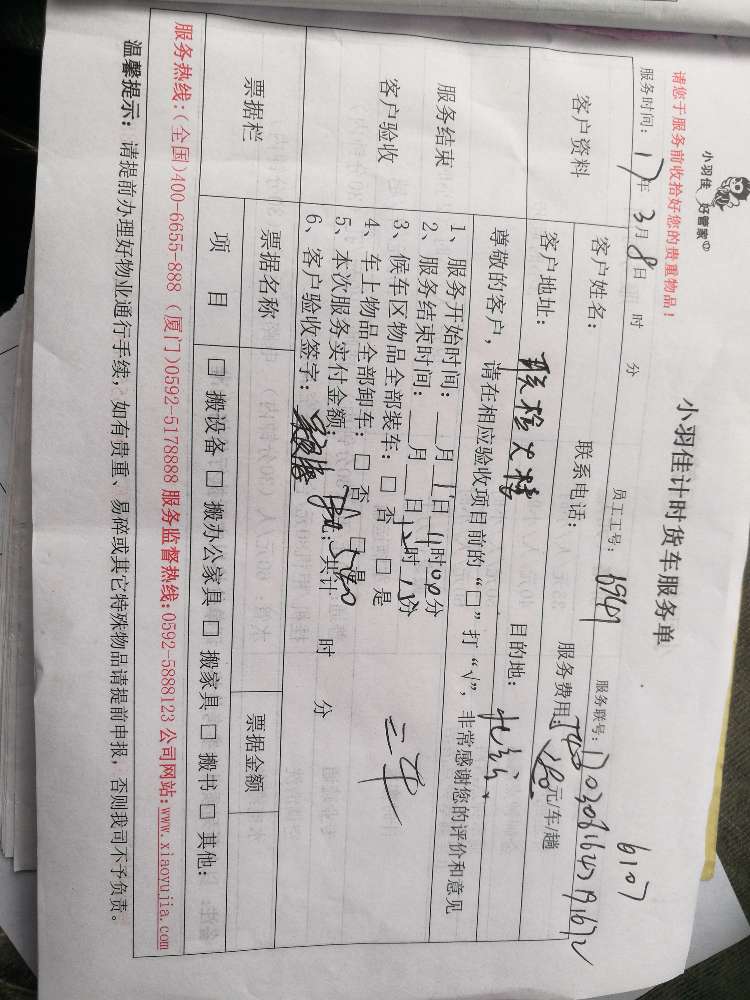 小羽佳 好管家
小羽佳计时货车服务单
6107
请您于服务前收拾好您的贵重物品！
服务时间： 17年 3月 8日 时 分 员工工号： 6947 服务联号：
客户资料
客户姓名： 联系电话： 服务费用： 元/车/趟
客户地址： 联检大楼 目的地：
服务结束
客户验收
尊敬的客户，请在相应验收项目前的“□”打“√”，非常感谢您的评价和意见
1、服务开始时间： 月 日 时00分
2、服务结束时间： 月 日 时 分
3、候车区物品全部装车：□ 否 □ 是
4、车上物品全部卸车：□ 否 □ 是
5、本次服务实付金额： 共计 时 分
6、客户验收签字：
二车
票据栏
票据名称 票据金额
项 目 □ 搬设备 □ 搬办公家具 □ 搬家具 □ 搬书 □ 其他：
服务热线：(全国)400-6655-888（厦门)0592-5178888 服务监督热线:0592-5888123 公司网站:www.xiaoyujia.com
温馨提示：请提前办理好物业通行手续，如有贵重、易碎或其它特殊物品请提前申报，否则我司不予负责。